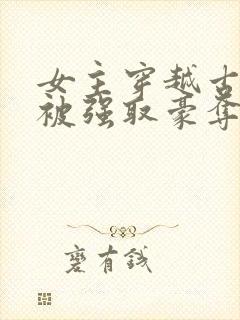 女主穿越古
被强取豪夺
褱有钱